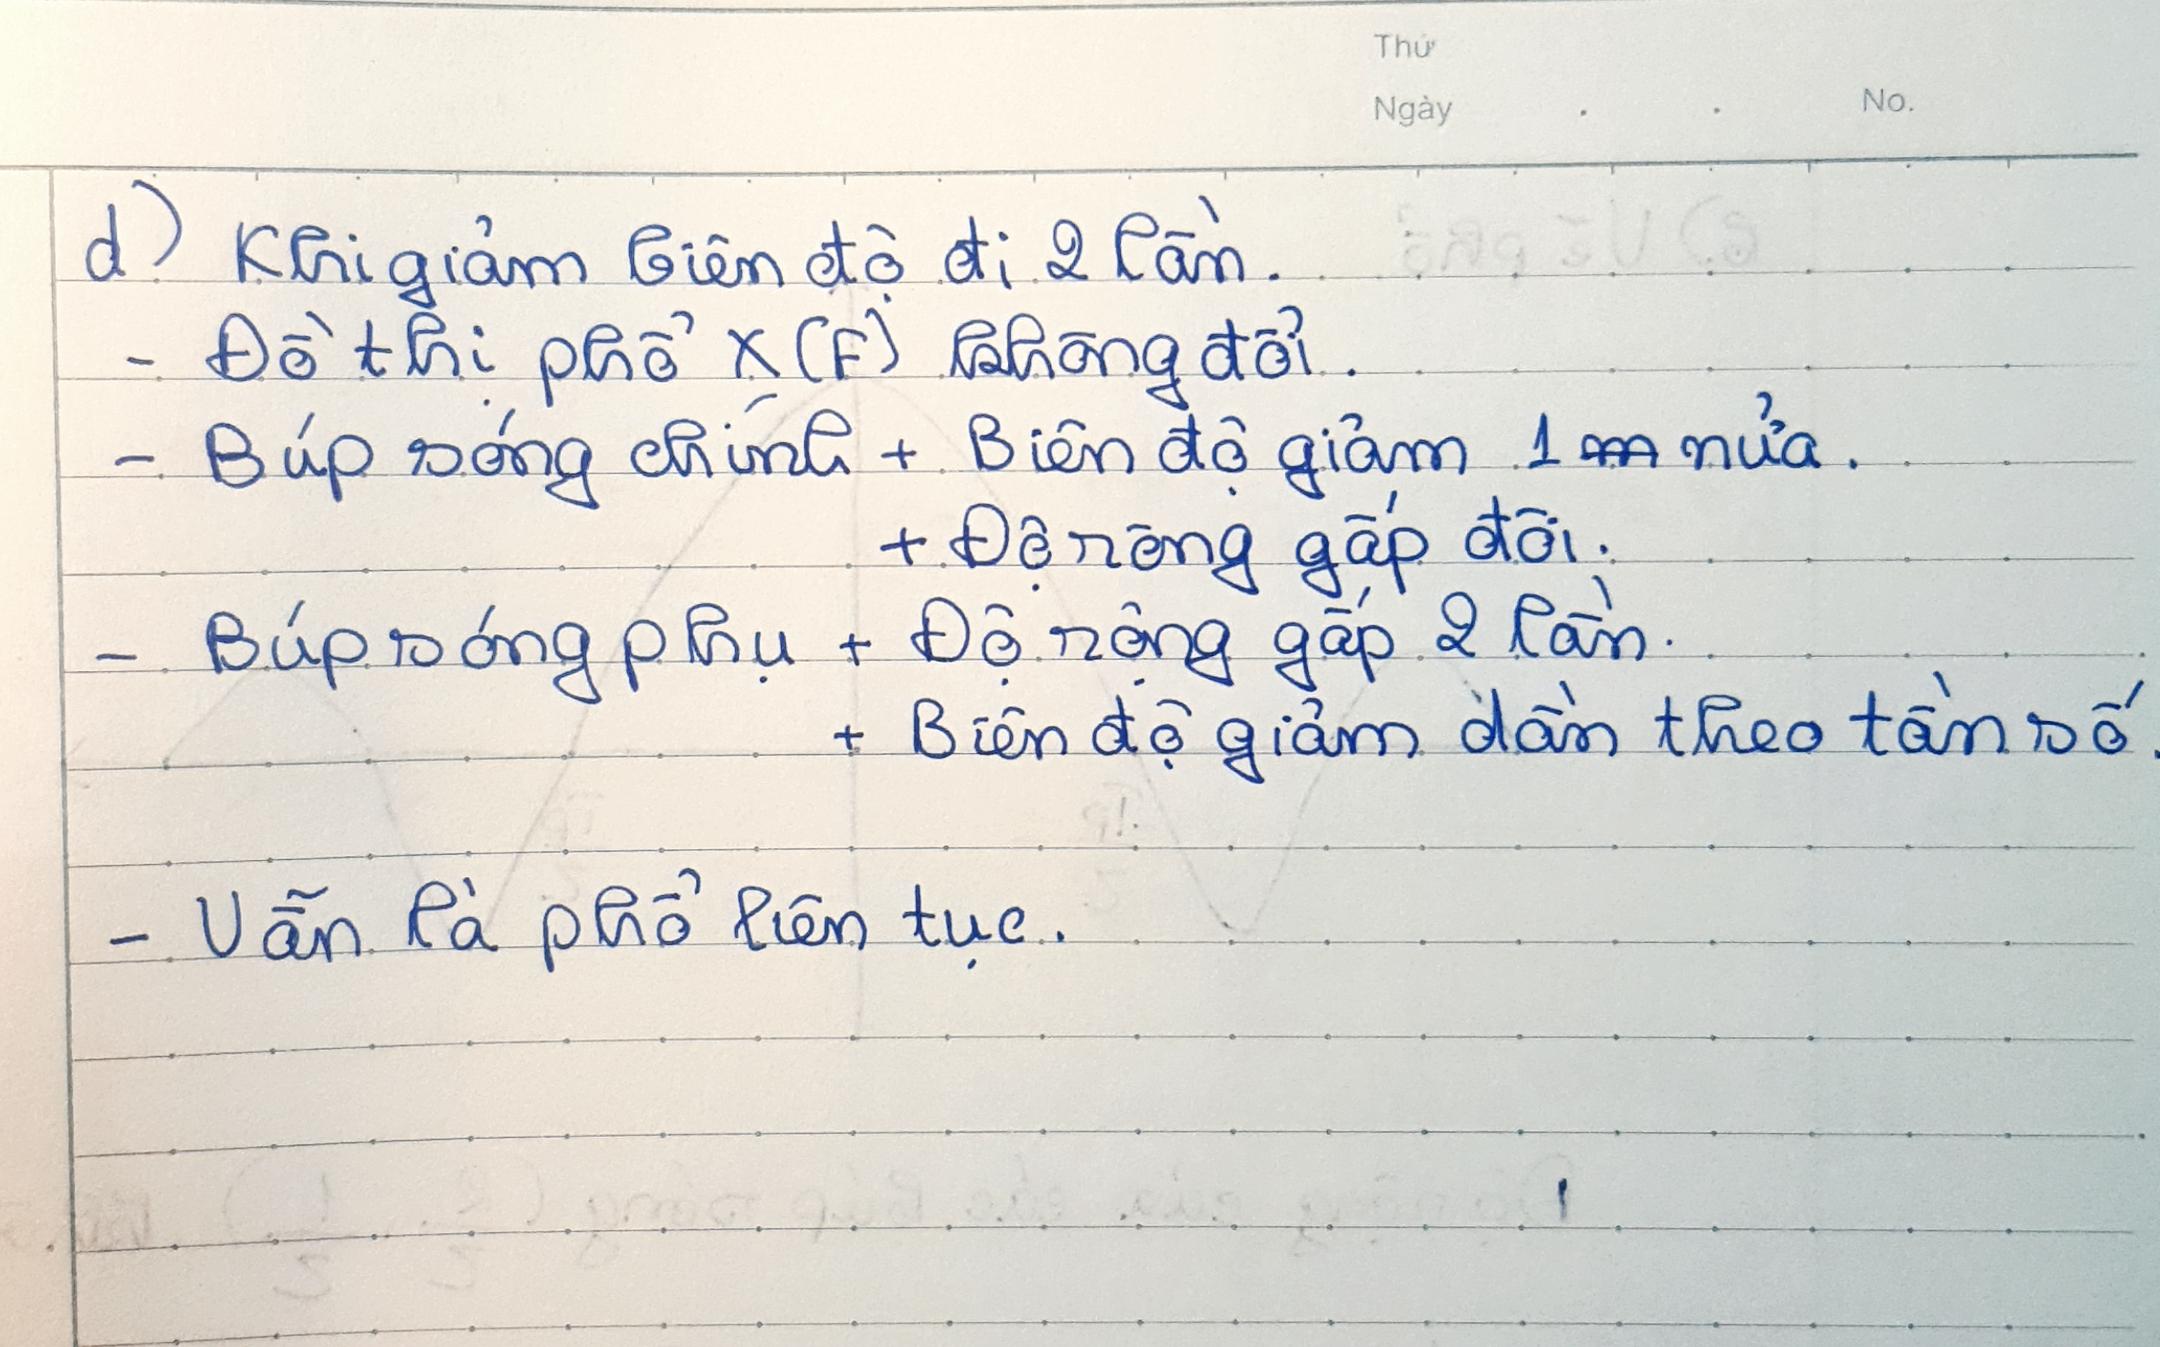 Thứ
Ngày . . No.
d) Khi giảm biên độ đi 2 lần.
- Đồ thị phổ X(F) không đổi.
- Búp sóng chính + Biên độ giảm 1 nửa.
+ Độ rông gấp đôi.
- Búp sóng phụ + Độ rộng gấp 2 lần.
+ Biên độ giảm dần theo tần số.
- Vẫn là phổ liên tục.